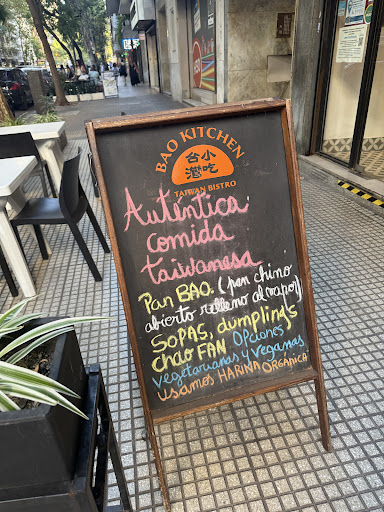 BAO KITCHEN
台灣小吃
TAIWAN BISTRO
Auténtica
comida
taiwanesa
Pan BAO. (pan chino
abierto relleno al vapor)
SOPAS, dumplings
chao FAN OPciones
vegetarianas y veganas
usamos HARINA ORGÁNICA